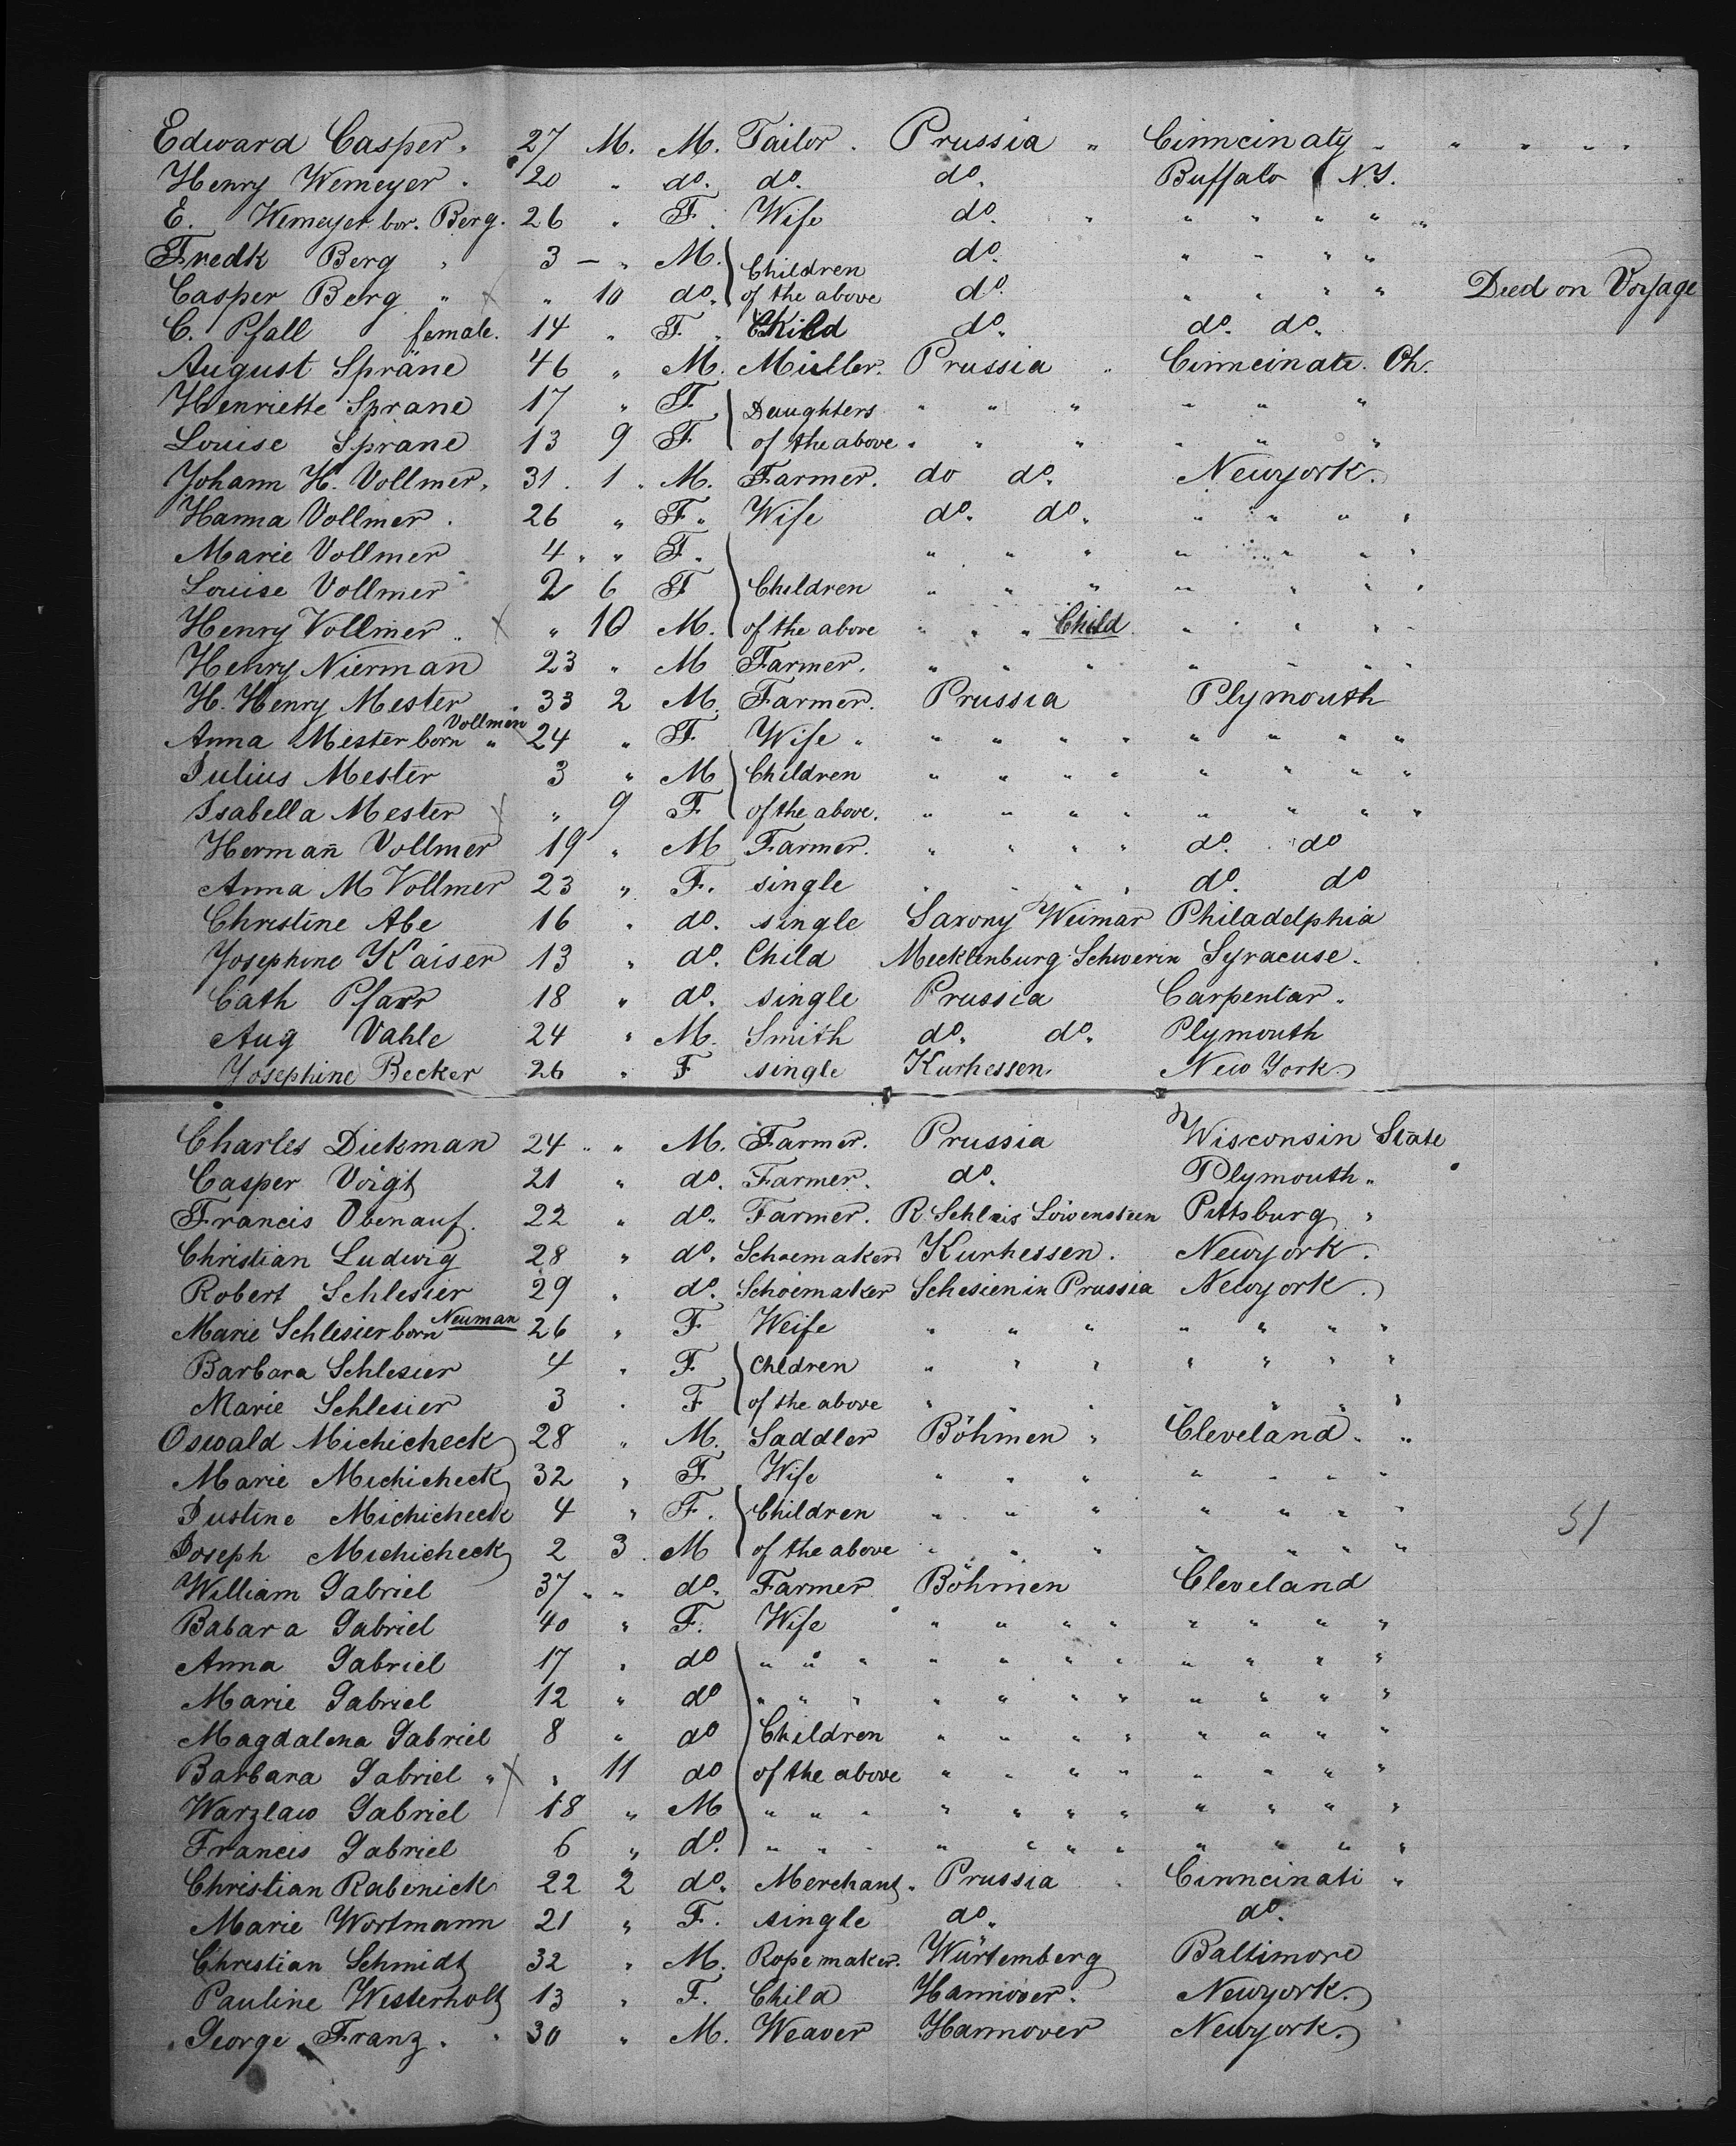 Edward Casper. 27 M. M. Tailor. Prussia " Cinncinaty " " " " "
Henry Wemeyer. 20 " do. do. do. Buffalo N.Y.
E. Wemeyer bor. Berg. 26 " F. Wife do. " " " " " "
Fredk Berg " 3 — " M. Children do. " " " "
Casper Berg " X " 10 do. of the above do. " " " " Died on Voyage
C. Pfall female. 14 " F. " Child do. do. do.
August Spräne 46 " M. Müller. Prussia " Cinncinati. Oh.
Henriette Sprane 17 " F Daughters " " " " " "
Louise Sprane 13 9 F of the above " " " " " "
Johann H. Vollmer. 31. 1 " M. Farmer. do do. Newyork.
Hanna Vollmer. 26 " F. Wife do. do. " " " "
Marie Vollmer 4. " F. " " " " " " "
Louise Vollmer 2 6 F Children " " " " " "
Henry Vollmer.. X " 10 M. of the above " " " Child " " " " "
Henry Nierman 23 " M Farmer. " " " " " " "
H. Henry Mester. 33 2 M. Farmer. Prussia Plymouth
Anna Mester born Vollmen " 24 " F Wife " " " " " " " " "
Julius Mester 3 " M Children " " " " " " " "
Isabella Mester X " 9 F of the above. " " " " " " " "
Hermañ Vollmer 19 " M Farmer. " " " " do. do
Anna M Vollmer 23 " F. single " " " " do. do
Christine Abe 16 " do. single Saxony Weimar Philadelphia
Josephine Kaiser 13 " do. Child Mecklenburg Schwerin Syracuse.
Cath Pfarr 18 " do. single Prussia Carpentar "
Aug Vahle 24 " M. Smith do. do. Plymouth
Josephine Becker 26 " F single Kurhessen New York.
Charles Diekman 24 " " M. Farmer. Prussia Wisconsin State
Casper Voigt 21 " do. Farmer. do. Plymouth "
Francis Obenauf. 22 " do. Farmer. R. Schleis Löwenstein Pittsburg "
Christian Ludwig 28 " do. Schoemaker Kurhessen. Newyork.
Robert Schlesier 29 " do. Schoemaker Schesien in Prussia Newyork.
Marie Schlesier born Neuman 26 " F Weife " " " " " " "
Barbara Schlesier 4 " F Chldren " " " " " " "
Marie Schlesier 3 " F of the above " " " " " " "
Oswald Michicheck 28 " M. Saddler Böhmen " Cleveland " "
Marie Michicheck 32 " F Wife " " " " " " "
Justine Michicheck 4 " F. Children " " " " " " "
Joseph Michicheck 2 3. M of the above " " " " " " "
51
William Gabriel 37 " " do. Farmer Böhmen Cleveland
Babara Gabriel 40 " F. Wife " " " " " " " "
Anna Gabriel 17 " do " " " " " " " " " " "
Marie Gabriel 12 " do " " " " " " " " " " "
Magdalena Gabriel 8 " do Children " " " " " " " "
Barbara Gabriel " X " 11 do of the above " " " " " " " "
Warzlaw Gabriel 18 " M " " " " " " " " " " "
Francis Gabriel 6 " do. " " " " " " " " " " "
Christian Rabenick 22 2 do. Merchant. Prussia " Cinncinati "
Marie Wortmann 21 " F. single do. do.
Christian Schmidt 32 " M. Ropemaker. Würtemberg Baltimore
Pauline Westerholt 13 " F. Child Hannover. Newyork.
George Franz. 30 " M. Weaver Hannover Newyork.